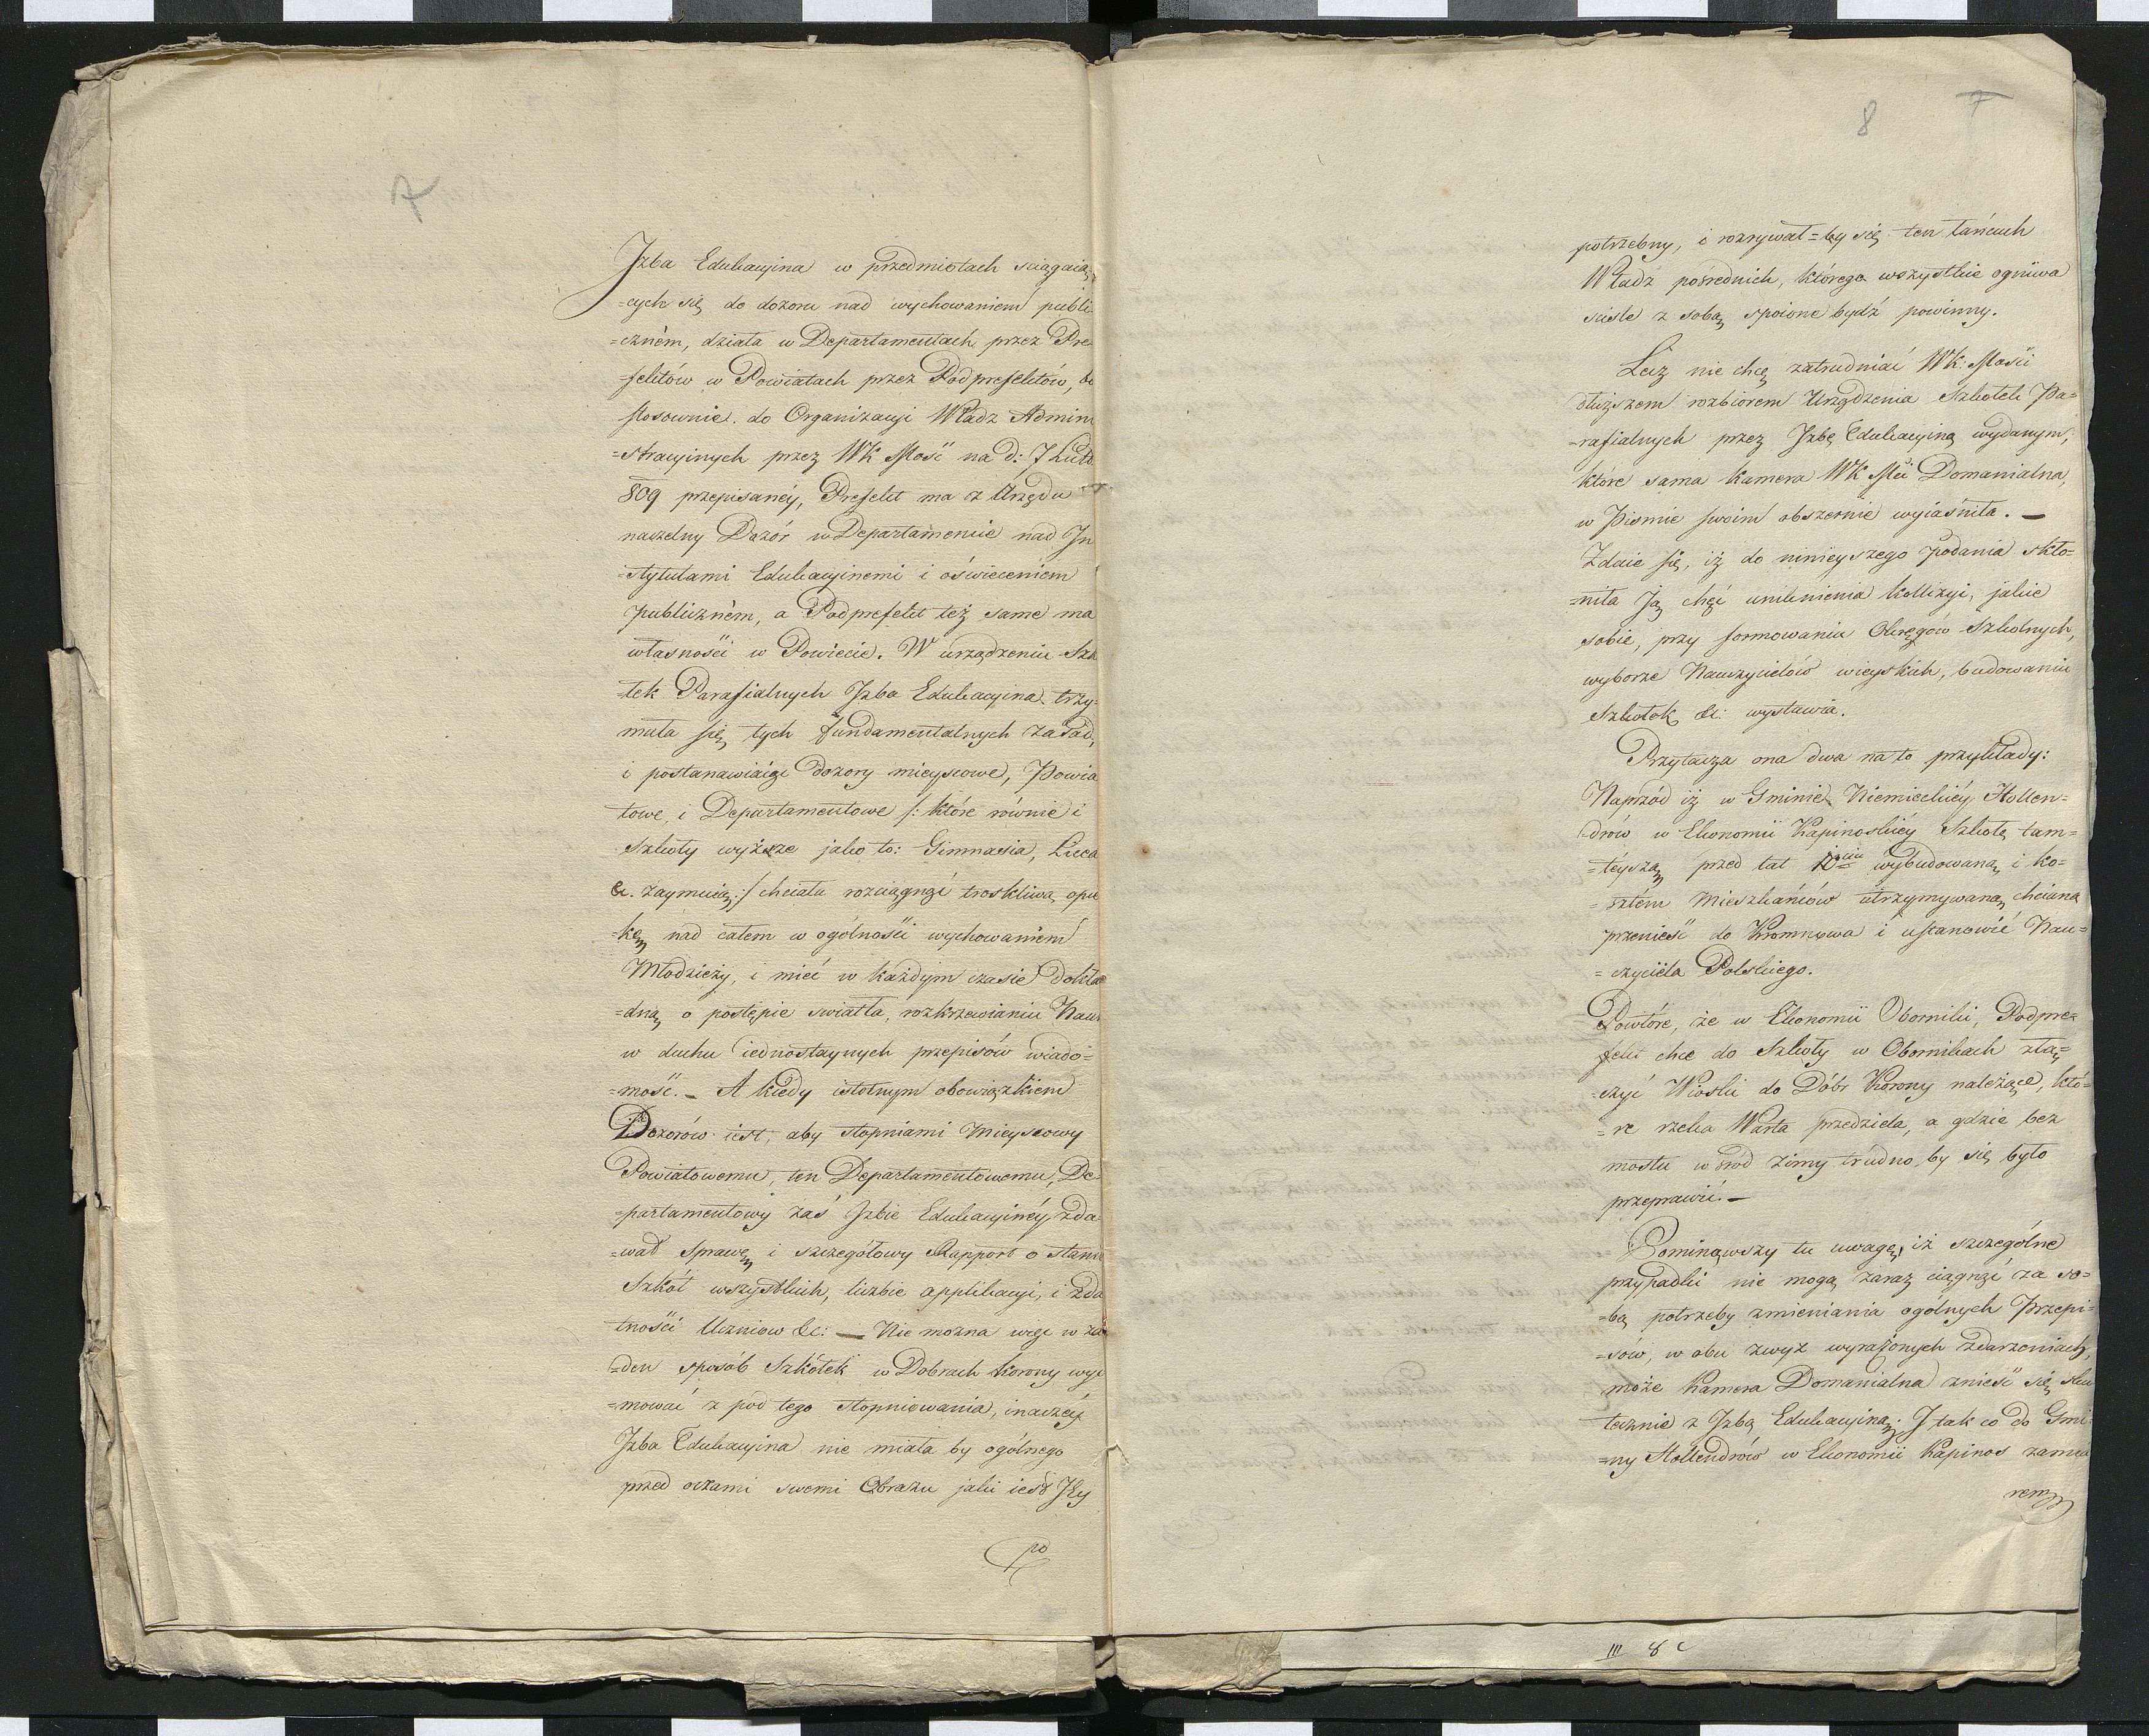 7
Jzba Edukacyina w przedmiotach sciągaią
=cych się do dozoru nad wychowaniem publi
=czném, działa w Departamentach przez Pre
=fektów w Powiatach przez Podprefektów, bo
stosownie do Organizacyi Władz Admini
=stracyinych przez WK Mość na d: 7 Lute
809 przepisanéy, Prefekt ma z Urzędu
naczelny Dozór w Departamencie nad Jn
=stytutami Edukacyinemi i oświeceniem
publiczném, a Podprefekt też same ma
własności w Powiecie. W urządzeniu Szk
=łek Parafialnych Jzba Edukacyina trzy=
mała się tych fundamentalnych zasad,
i postanawiaiąc dozory mieyscowe, Powia
towe, i Departamentowe /: które równie i
Szkoły wyższe jako to: Gimnasia, Licea
&. zaymuią :/ chciała rozciągnąć troskliwą opie
=kę nad całem w ogólności wychowaniem
Młodzieży, i mieć w każdym czasie dokła
=dną o postępie swiatła, rozkrzewianiu Nauk
w duchu iednostaynych przepisów wiado=
=mość. – A kiedy istotnym obowiązkiem
Dozorów iest, aby stopniami Mieyscowy
Powiatowemu, ten Departamentowemu, De=
=partamentowy zaś Jzbie Edukacyinéy zda
=wał sprawę i szczegółowy Rapport o stanie
Szkół wszystkich, liczbie applikacyi, i zda
tności Uczniow &c: — Nie można więc w ża
=den sposób Szkółek w Dobrach Korony wyi
=mować z pód tego stopniowania, inaczéy
Jzba Edukacyina nie miała by ogólnego
przed oczami swemi Obrazu jaki iest Jey
po
8 7
potrzebny, i rozrywał=by się ten łańcuch
Władz pośrednich, którego wszystkie ogniwa
scisle z sobą spoione bydź powinny.
Lecz nie chcę zatrudniać WK: Mości
dłuższem rozbiorem Urządzenia Szkołek Pa=
=rafialnych przez Jzbę Edukacyiną wydanym,
które sama Kamera WK Mci Domanialna,
w Piśmie swoim obszernie wyiaśniła. —
Zdaie się, iż do ninieyszego podania skło=
=niła Ją chęć uniknienia kollizyi, jakie
sobie, przy formowaniu Okręgów Szkolnych,
wyborze Nauczycielów wieyskich, budowaniu
Szkołek &c: wystawia.
Przytacza ona dwa na to przykłady:
Naprzód iż w Gminie Niemieckiéy Hollen=
drów w Ekonomii Kapinoskiéy Szkołę tam=
=téyszą przed lat wybudowaną i ko=
=sztem Mieszkańców utrzymywaną chciano
przenieść do Kromnowa i ustanowić Nau=
=czyciela Polskiego.
Powtóre, że w Ekonomii Oborniki, Podpre=
fekt chce do Szkoły w Obornikach złą=
=czyć Wioski do Dóbr Korony należące, któ=
=re rzeka Warta przedziela, a gdzie bez
mostu w śród zimy trudno by się było
przeprawić. —
Pominąwszy tu uwagę, iż szczególne
przypadki nie mogą zaraz ciągnąć za so=
=bą potrzeby zmieniania ogólnych Przepi=
=sów, w obu zwyż wyrażonych zdarzeniach,
może Kamera Domanialna znieść się sku
tecznie z Jzbą Edukacyiną; J tak co do Gmi
=ny Hollendrów w Ekonomii Kapinos zamia
rem
III 8 c